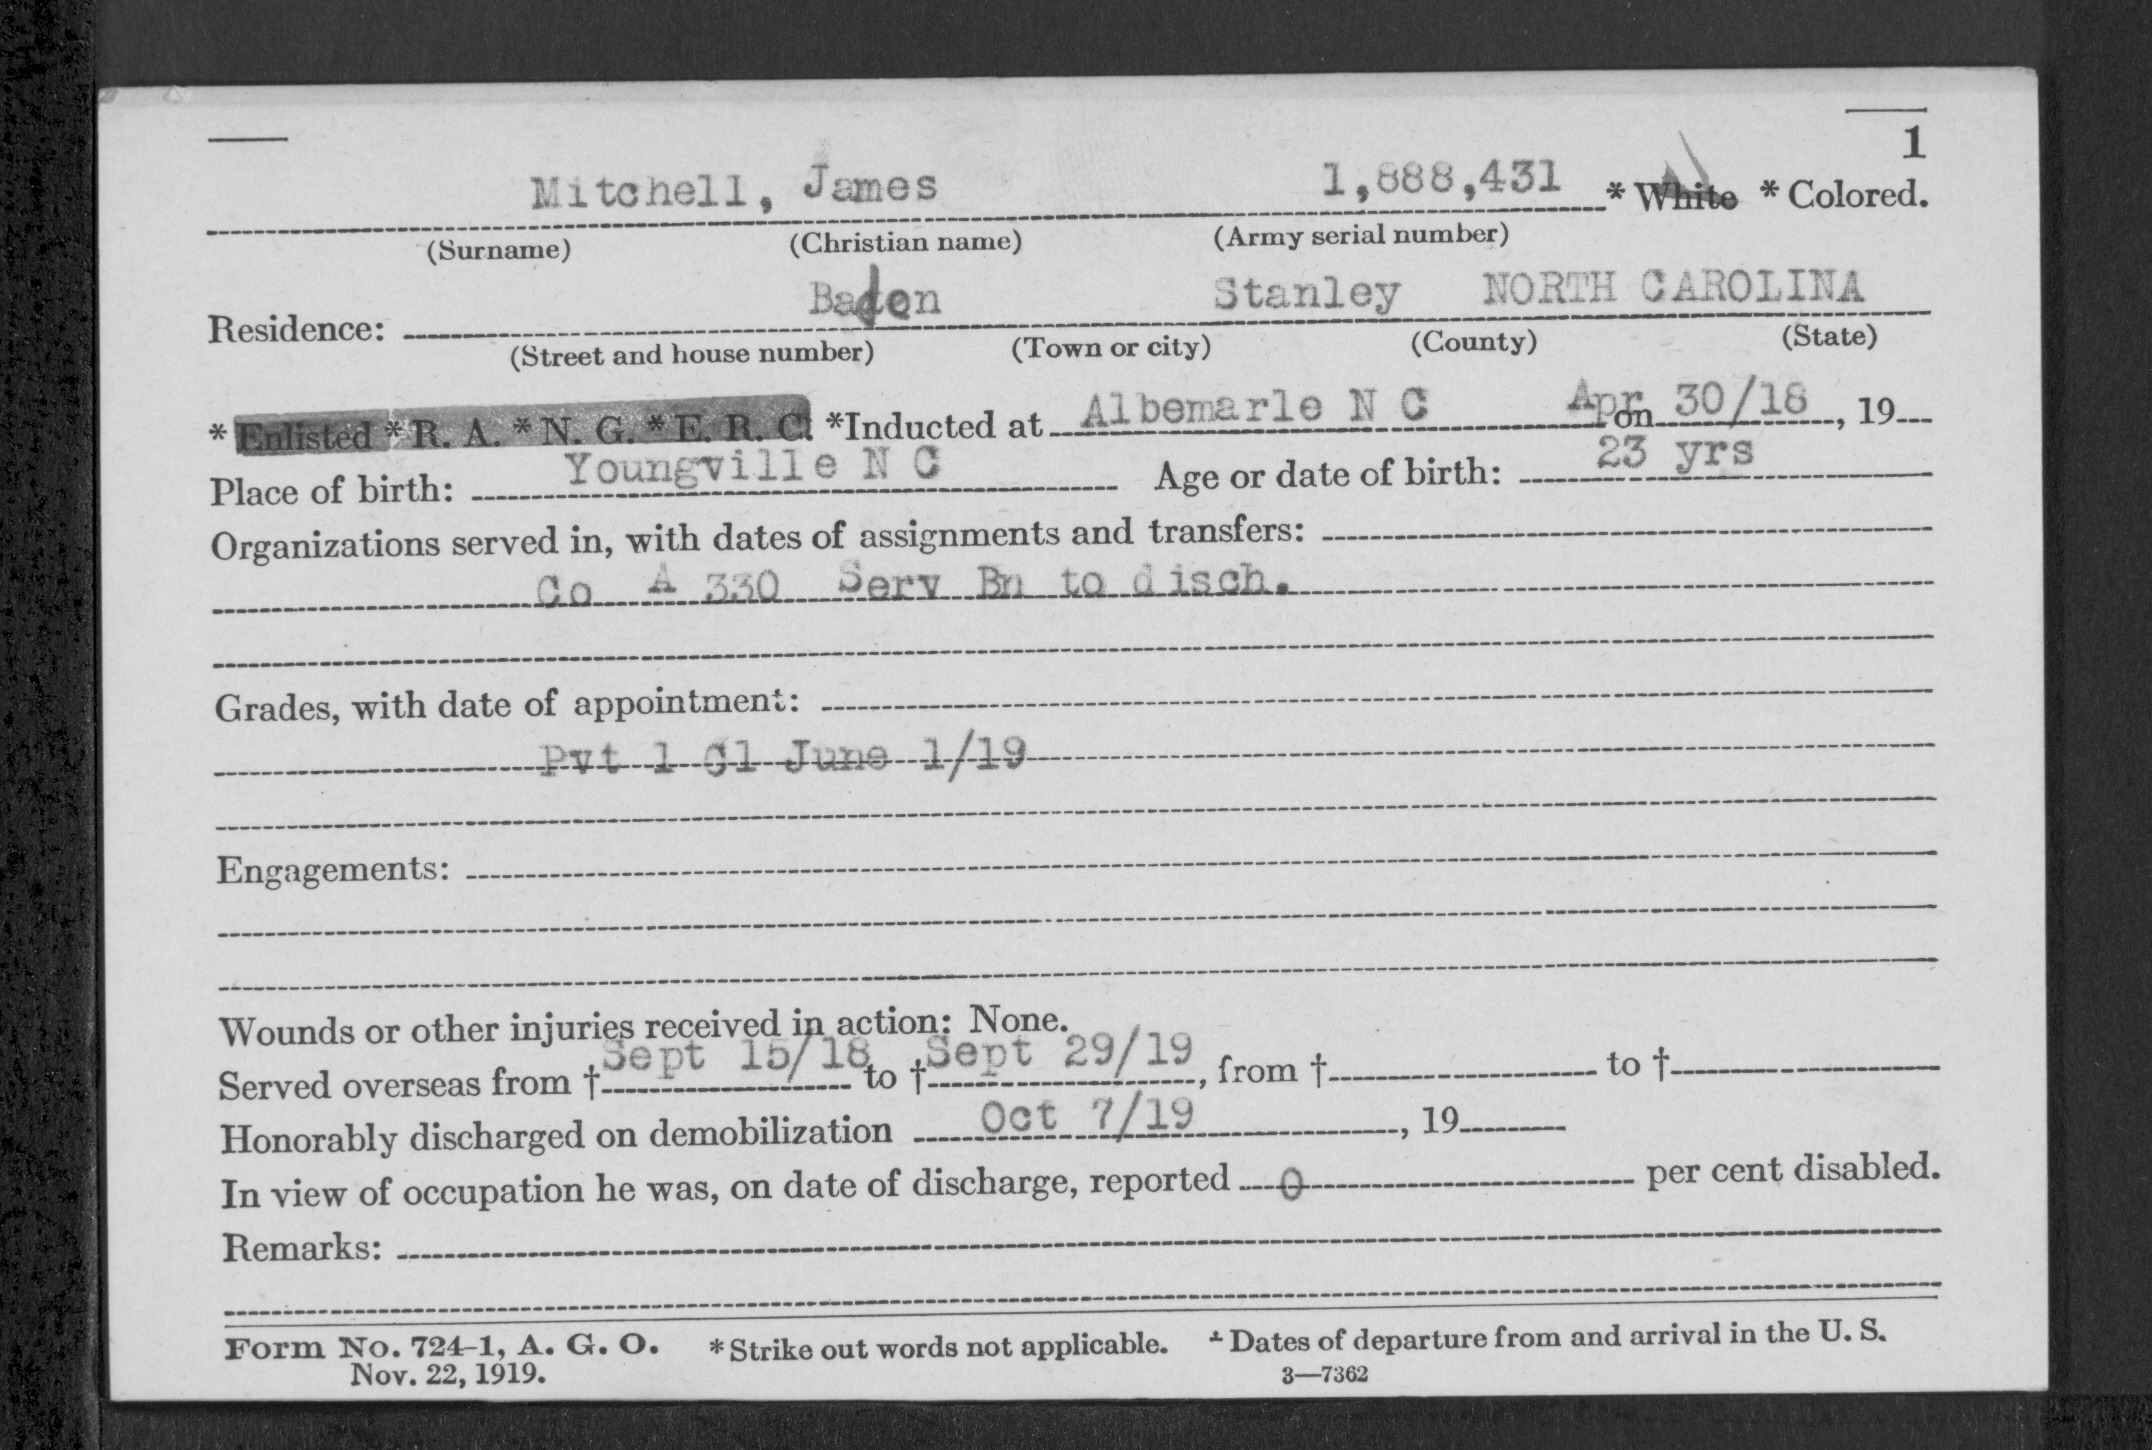 1
Mitchell, James 1,888,431 * White * Colored.
(Surname) (Christian name) (Army serial number)
Residence: Baden Stanley NORTH CAROLINA
(Street and house number) (Town or city) (County) (State)
* Enlisted * R. A. * N. G. * E. R. C. *Inducted at Albemarle N C on Apr 30/18, 19
Place of birth: Youngville N C Age or date of birth: 23 yrs
Organizations served in, with dates of assignments and transfers:
Co A 330 Serv Bn to disch.
Grades, with date of appointment:
Pvt 1 Cl June 1/19
Engagements:
Wounds or other injuries received in action: None.
Served overseas from † Sept 15/18 to † Sept 29/19, from † to †
Honorably discharged on demobilization Oct 7/19, 19
In view of occupation he was, on date of discharge, reported 0 per cent disabled.
Remarks:
Form No. 724-1, A. G. O. * Strike out words not applicable. † Dates of departure from and arrival in the U. S.
Nov. 22, 1919. 3—7362